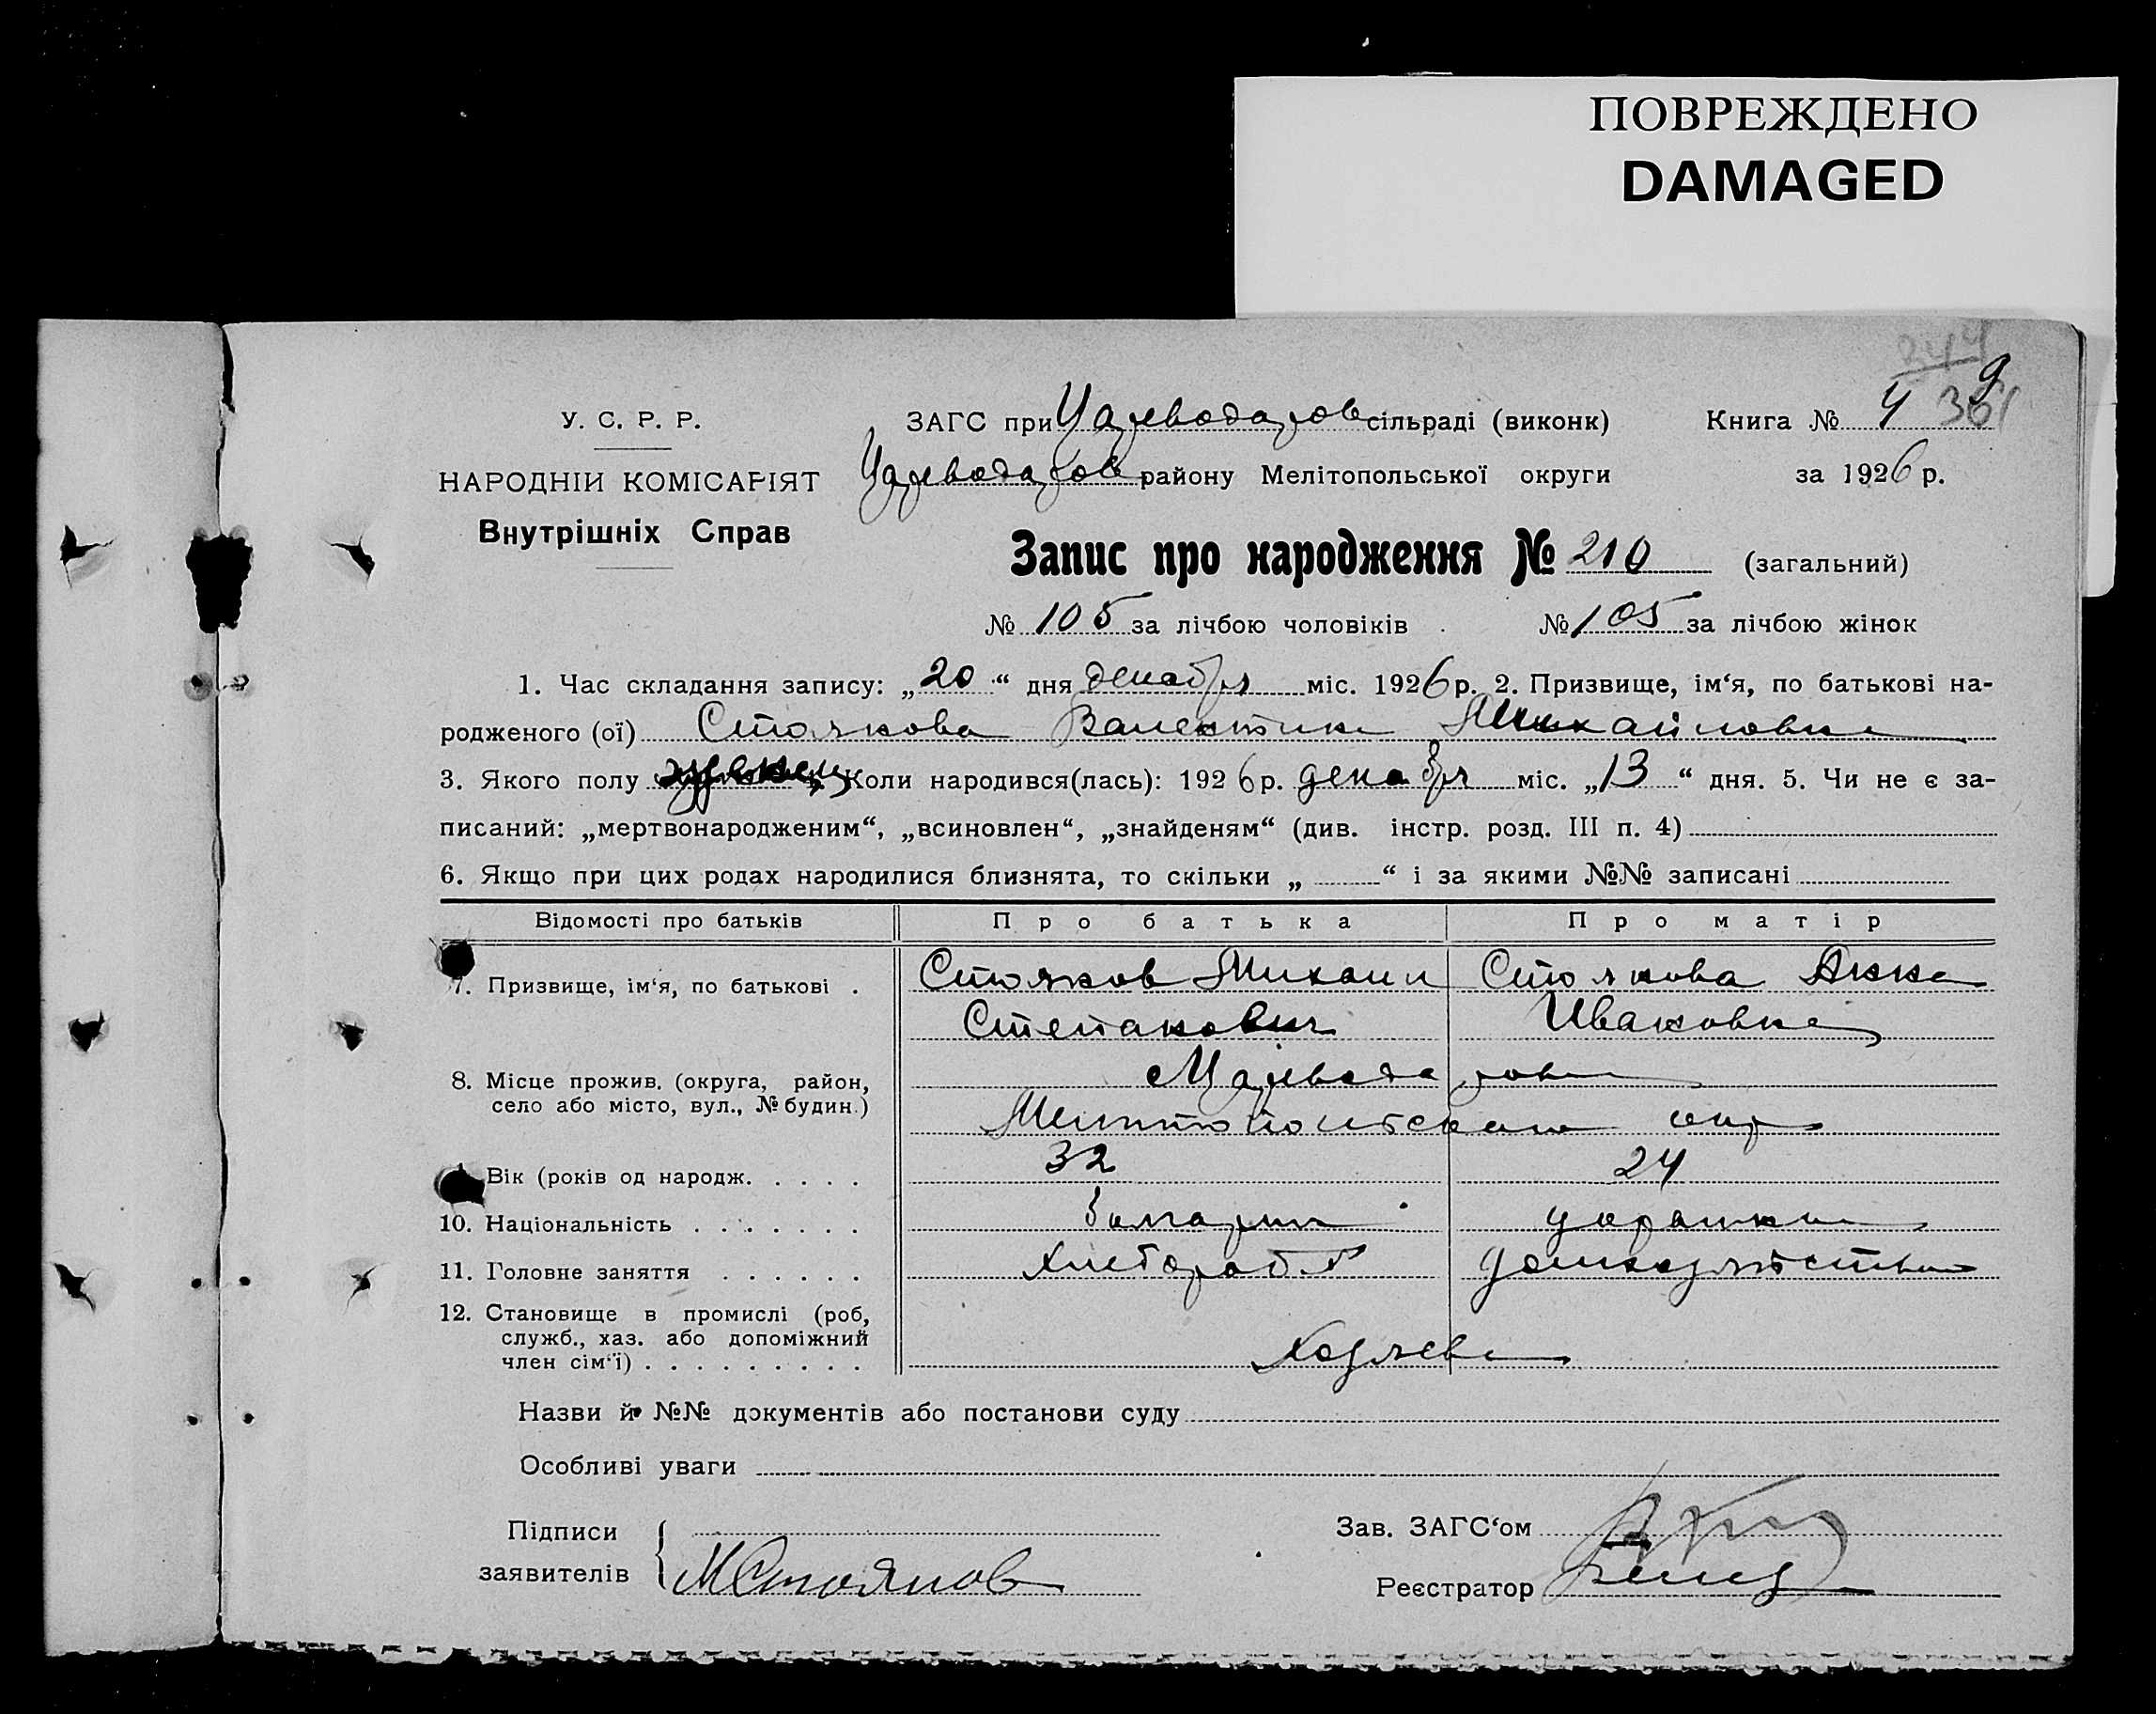 ПОВРЕЖДЕНО
DAMAGED
244
9
361
У. С. Р. Р.
ЗАГС при Цареводаров сільраді (виконк)
Книга № 4
НАРОДНІЙ КОМІСАРІЯТ
Цареводаров району Мелітопольської округи
за 1926 р.
Внутрішніх Справ
Запис про народження № 210 (загальний)
№ 105 за лічбою чоловіків № 105 за лічбою жінок
1. Час складання запису: „20“ дня декабря міс. 1926 р. 2. Призвище, ім‘я, по батькові на-
родженого (ої) Стоянова Валентина Михайловна
3. Якого полу 4. Коли народився(лась): 1926 р. декабря міс. „13“ дня. 5. Чи не є за-
писаний: „мертвонародженим“, „всиновлен“, „знайденям“ (див. інстр. розд. III п. 4)
6. Якщо при цих родах народилися близнята, то скільки „ “ і за якими №№ записані
Відомості про батьків Про батька Про матір
7. Призвище, ім‘я, по батькові . Стоянов Михаил Стоянова Анна
Степанович Ивановна
8. Місце прожив. (округа, район,
село або місто, вул., № будин.)
Мелитопольской окр
Вік (років од народж. . . . . 32 24
10. Національність . . . . . . . болгарин
11. Головне заняття . . . . . . Хлебороб
12. Становище в промислі (роб,
служб., хаз. або допоміжний
член сім‘ї) . . . . . . . . . Хозяева
Назви й №№ документів або постанови суду
Особливі уваги
Підписи
заявителів
МСтоянов
Зав. ЗАГС‘ом
Реєстратор